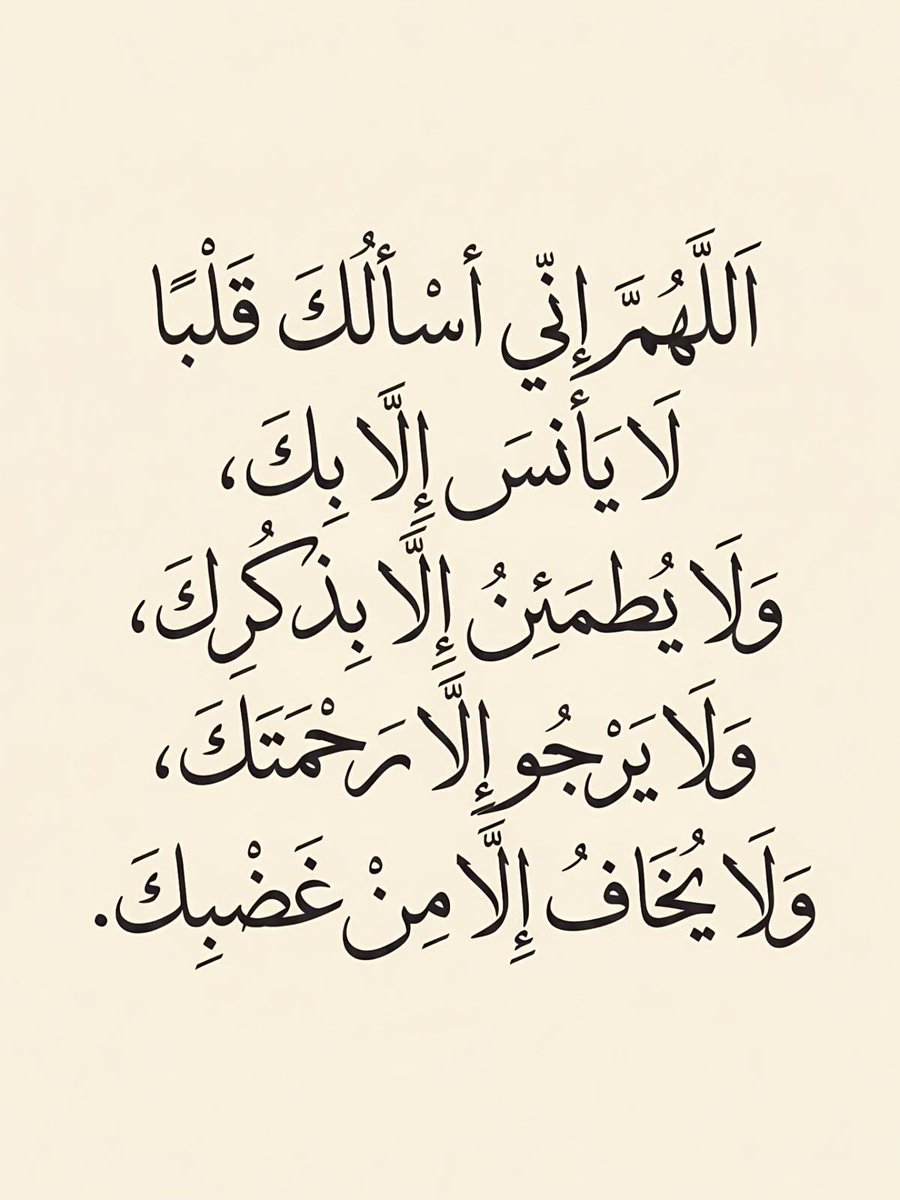 اَللَّهُمَّ إِنّي أسْألُكَ قَلْبًا
لَا يَأنسَ إِلَّا بِكَ،
وَلَا يُطمَئِنُ إِلَّا بِذكُرِكَ،
وَلَا يَرْجُو إِلَّا رَحْمَتَكَ،
وَلَا يُخَافُ إِلَّا مِنْ غَضْبِكَ.